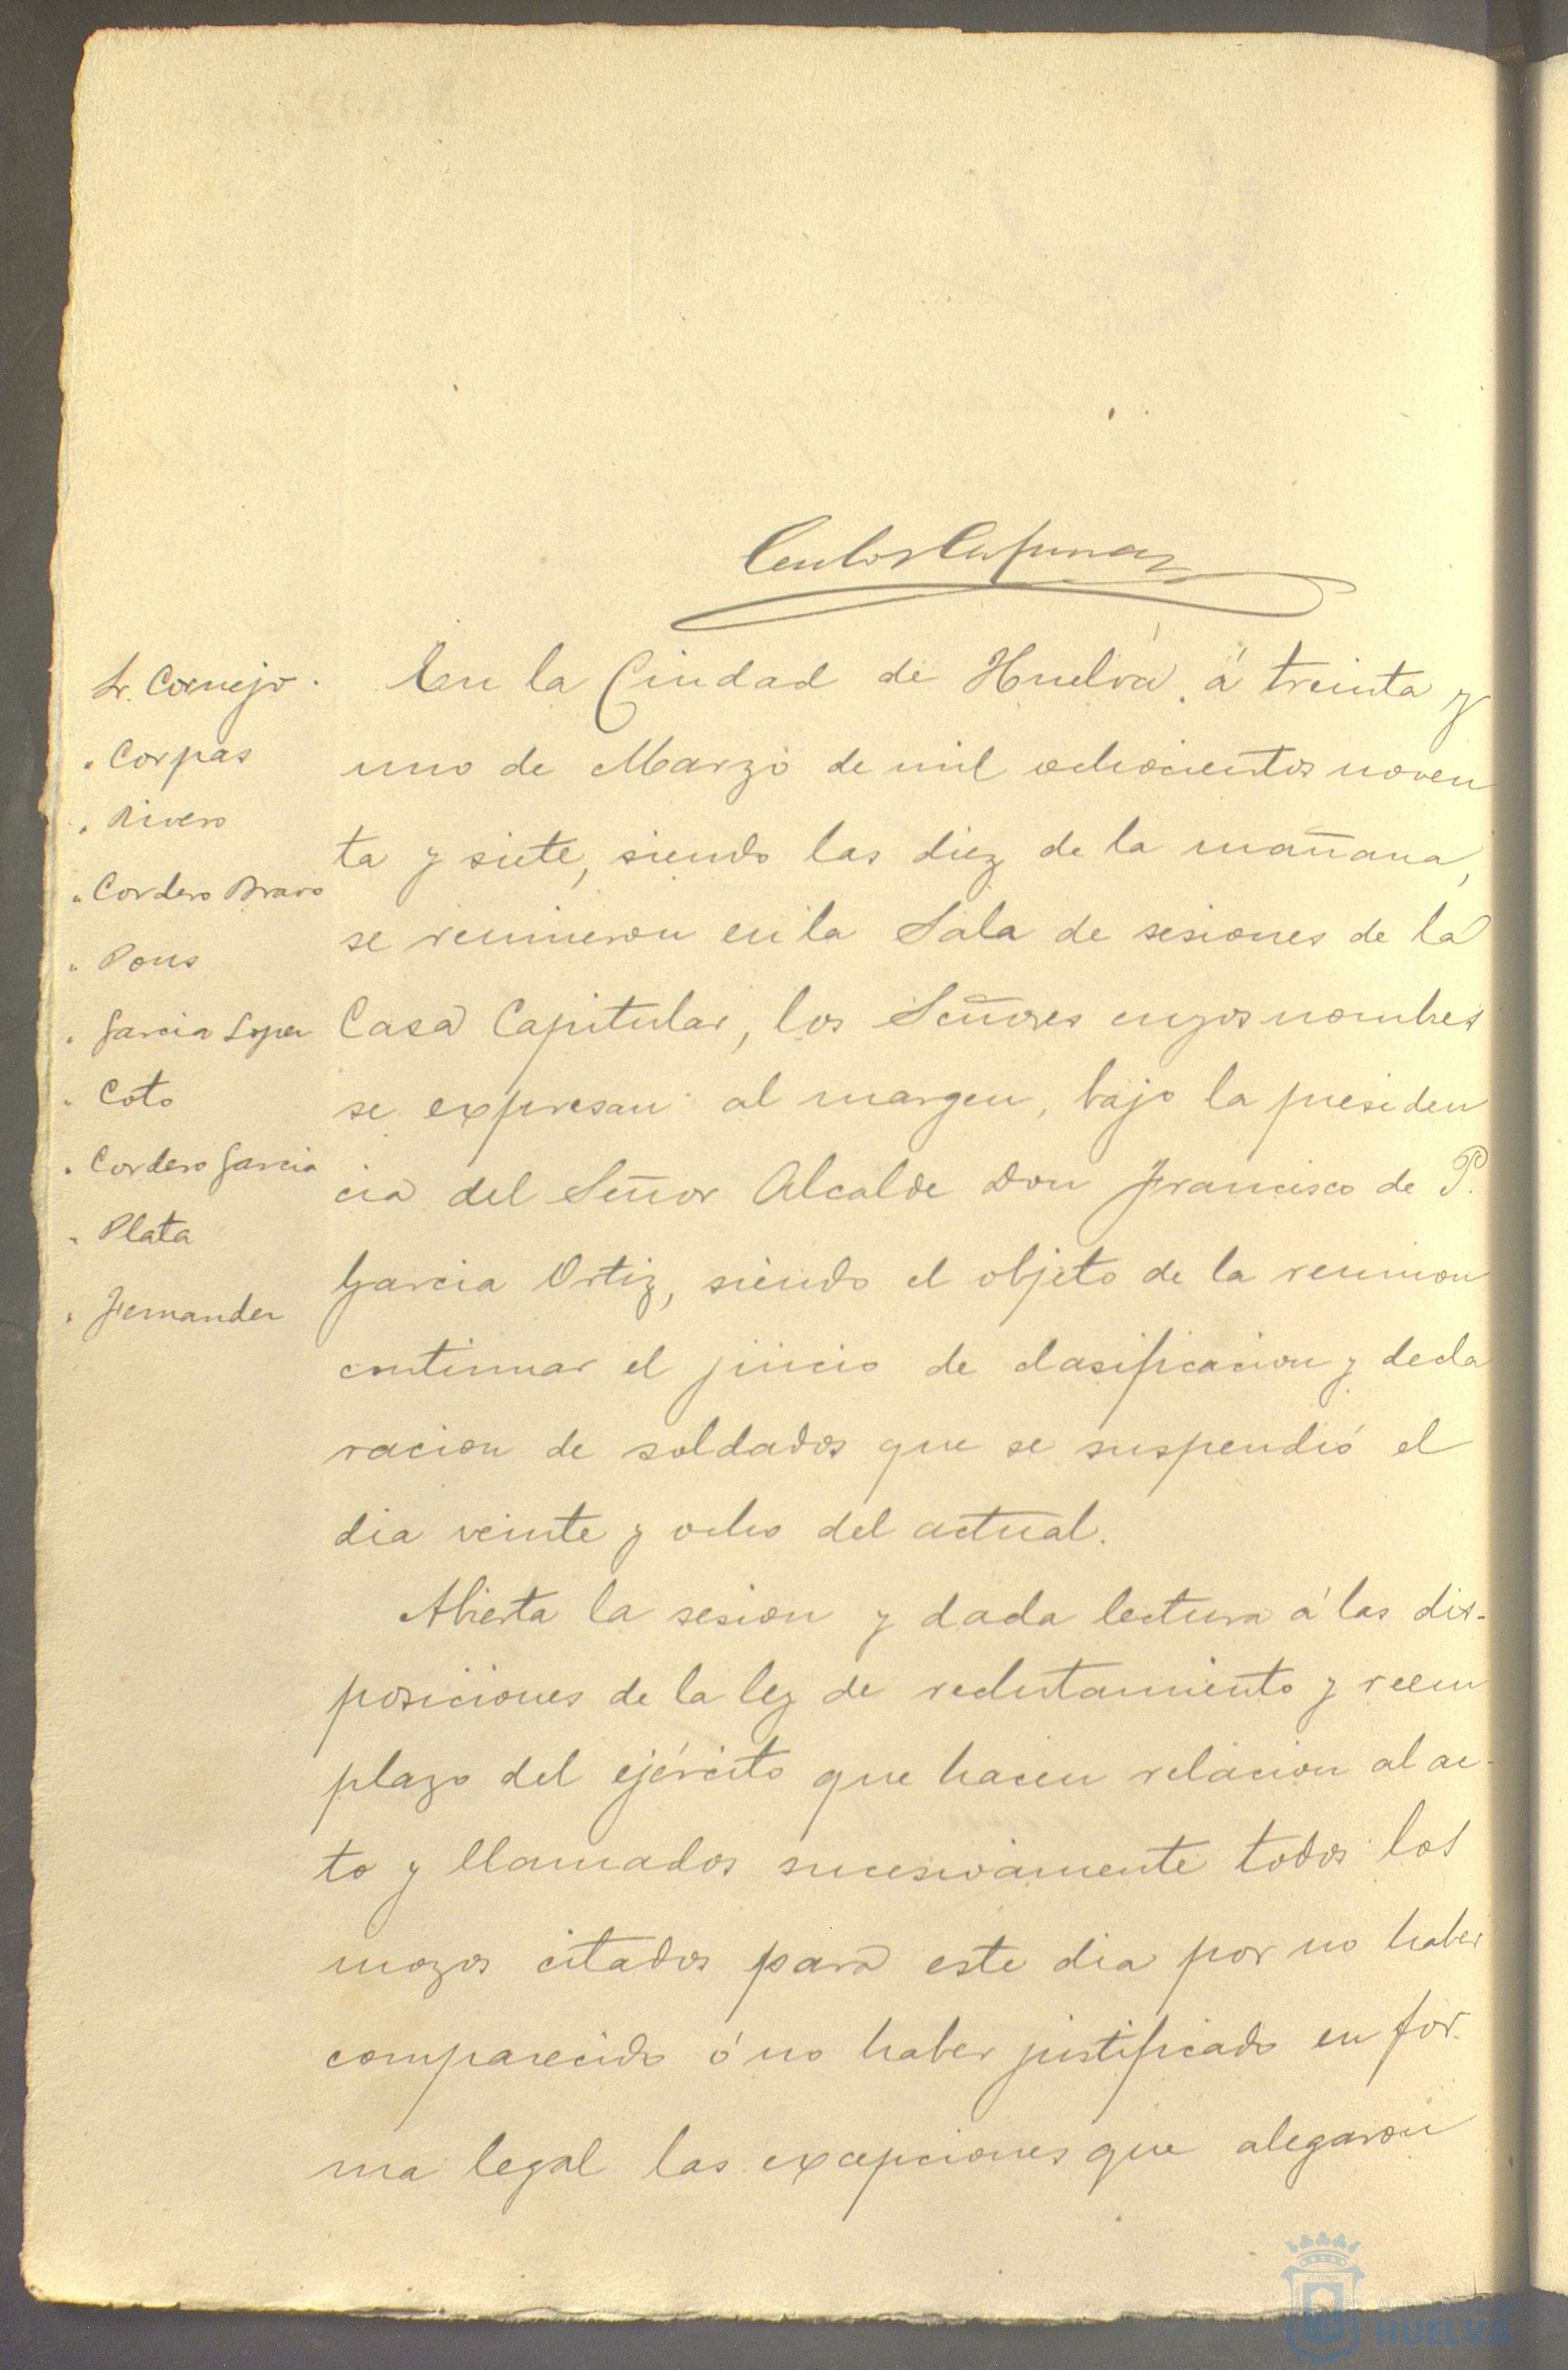 Sr. Cornejo.
" Corpas
" Rivero
" Cordero Bravo
" Pons
" Garcia Lopez
" Coto
" Cordero Garcia
" Plata
" Fernandez
En la Ciudad de Huelva, á treinta y
uno de Marzo de mil ochocientos noven
ta y siete, siendo las diez de la mañana,
se reunieron en la Sala de sesiones de la
Casa Capitular, los Señores cuyos nombres
se expresan al margen, bajo la presiden
cia del Señor Alcalde Don Francisco de P.
Garcia Ortiz, siendo el objeto de la reunion
continuar el juicio de clasificacion y decla
racion de soldados que se suspendió el
dia veinte y ocho del actual.
Abierta la sesion y dada lectura á las dis-
posiciones de la ley de reclutamiento y reem
plazo del ejército que hacen relacion al ac-
to y llamados sucesivamente todos los
mozos citados para este dia por no haber
comparecido ó no haber justificado en for-
ma legal las excepciones que alegaron
HUELVA